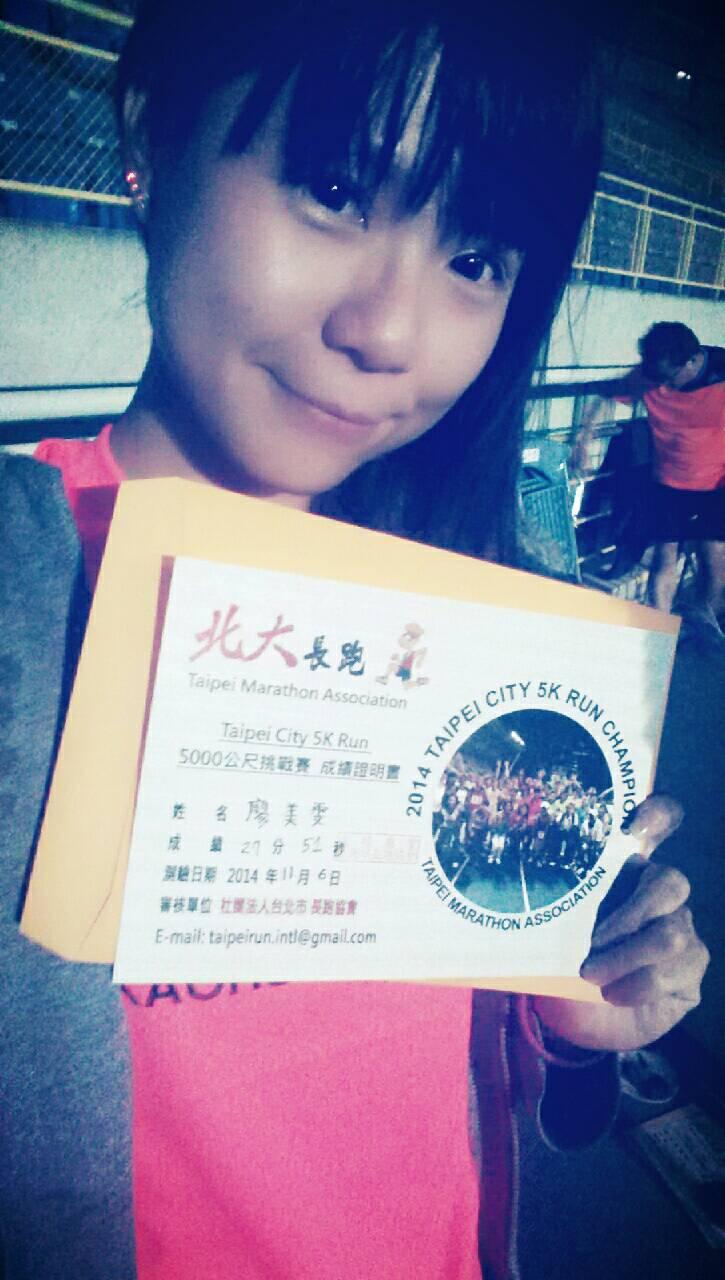 北大長跑
Taipei Marathon Association
Taipei City 5K Run
5000公尺挑戰賽 成績證明書
姓 名 廖美雯
成 績 27 分 51 秒
測驗日期 2014 年 11 月 6 日
審核單位 社團法人台北市長跑協會
E-mail: taipeirun.intl@gmail.com
2014 TAIPEI CITY 5K RUN CHAMPIO
TAIPEI MARATHON ASSOCIATION